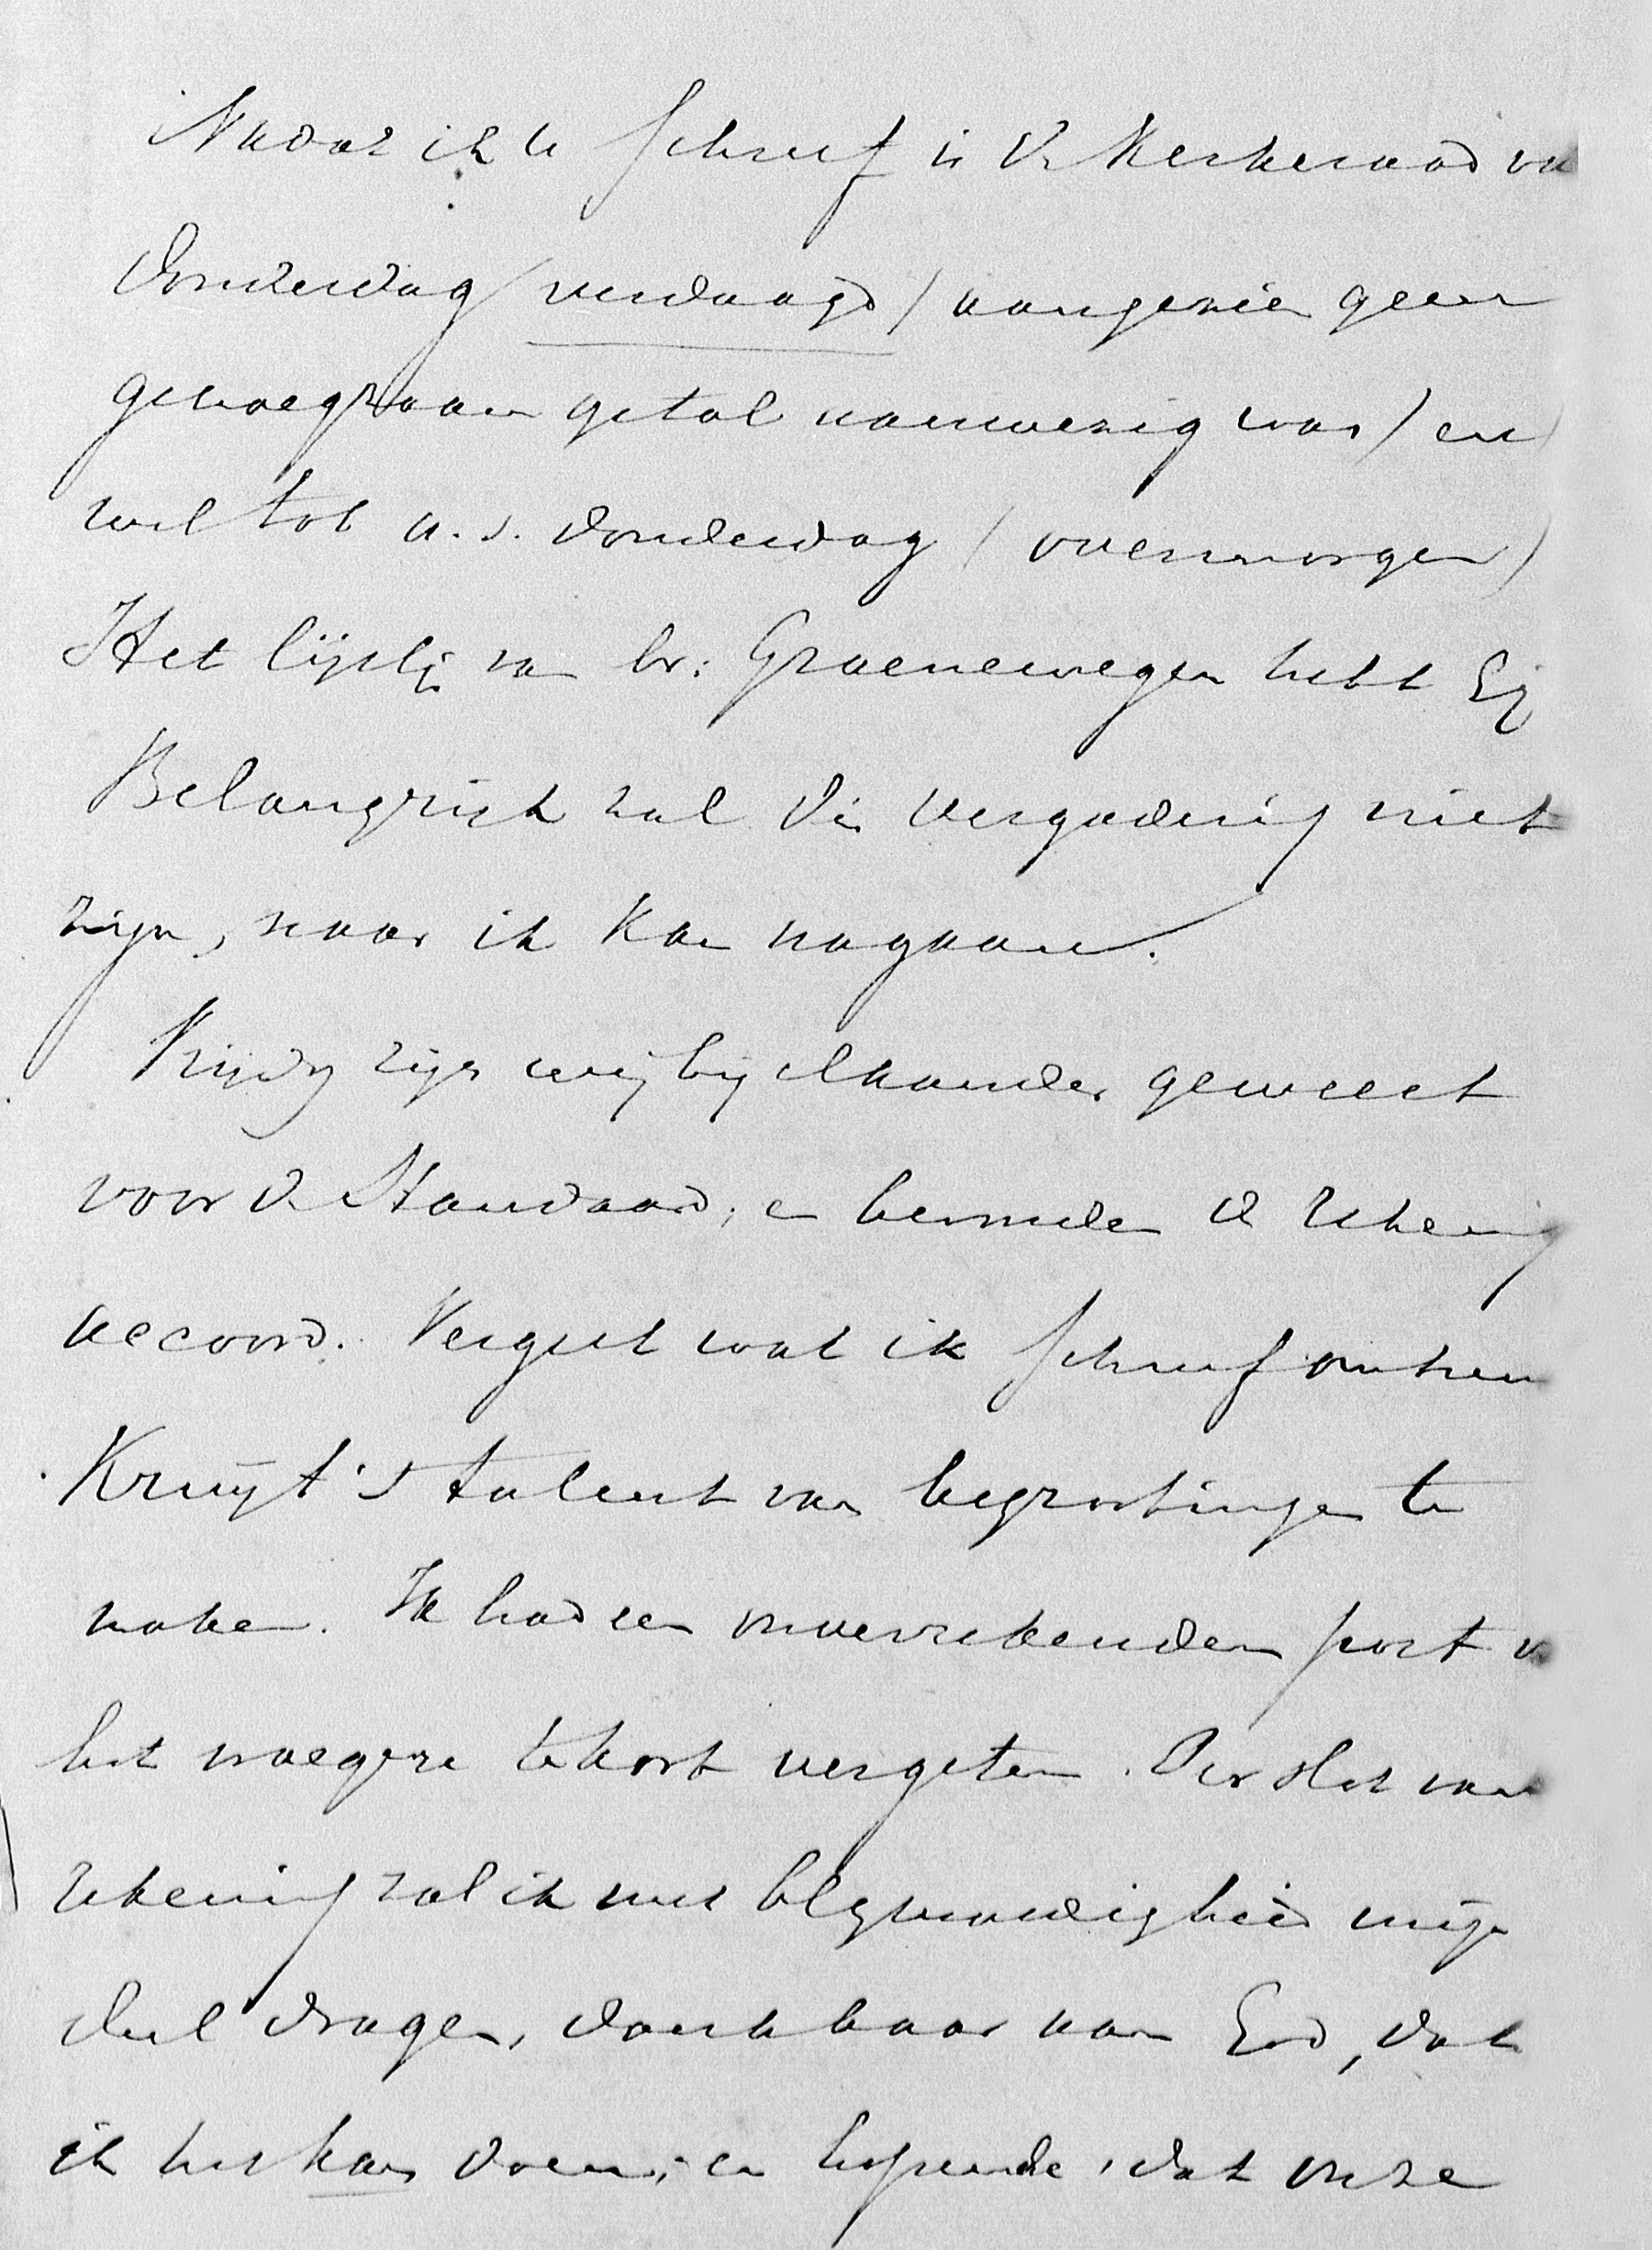 Nadat ik U schreef is de Kerkeraad van
Donderdag verdaagd (aangezien geen
genoegzaam getal aanwezig was) en
wel tot a.s. Donderdag (overmorgen)
Het lijstje van br. Groenewegen hebt Gij
Belangrijk zal die vergadering niet
zijn, naar ik kan nagaan.
Vrijdag zijn wij bij elkander geweest
voor de Standaard; en bevonden de rekening
accoord. Vergeet wat ik schreef omtrent
Kruyt's talent van begrootingen te
maken. Ik had een onverrekenden post v
het vroegere tekort vergeten. Per slot van
rekening zal ik met blijmoedigheid mijn
deel dragen, dankbaar aan God, dat
ik het kan doen; en hopende, dat onze